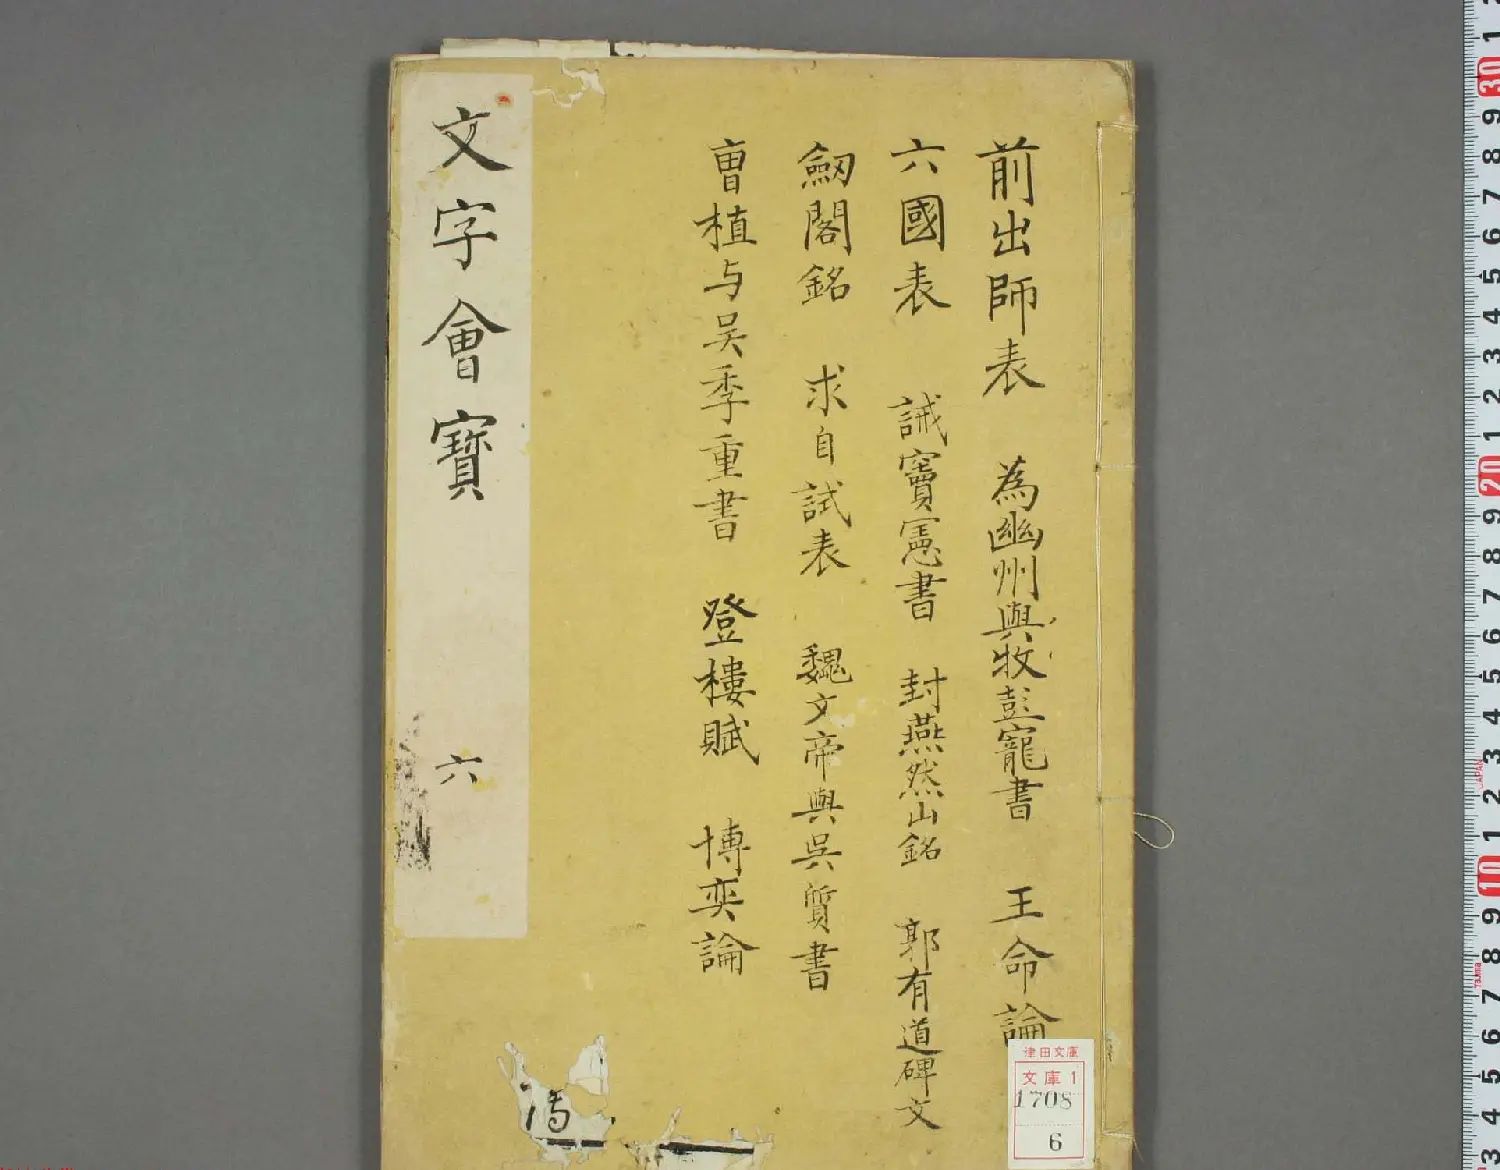 前出師表 為幽州與牧彭寵書 王命論
六國表 誡竇憲書 封燕然山銘 郭有道碑文
劒閣銘 求自試表 魏文帝與吳質書
曹植与吴季重書 登樓賦 博奕論
文字會寳 六
津田文庫
文庫1
1708
6